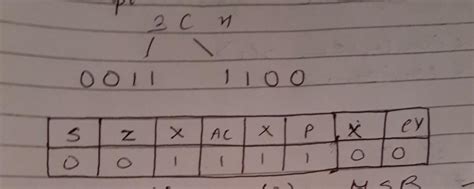 3 C H
0 0 1 1 1 1 0 0
S Z X AC X P X CY
0 0 1 1 1 1 0 0